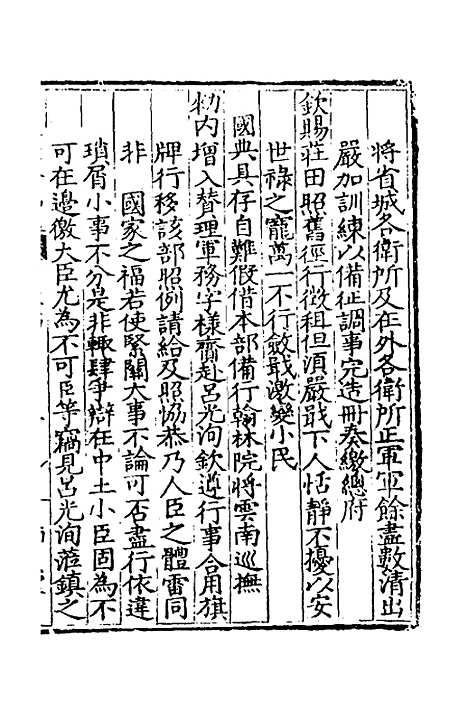 將省城各衛所及在外各衛所正軍軍餘盡數清出
嚴加訓練以備征調事完造冊奏繳總府
欽賜莊田照舊徑行徵租但須嚴戢下人恬靜不擾以安
世祿之寵萬一不行斂戢激變小民
國典具存自難假借本部備行翰林院將雲南巡撫
勑內增入贊理軍務字樣齎赴呂光洵欽遵行事合用旗
牌行移該部照例請給及照協恭乃人臣之體雷同
非 國家之福若使緊關大事不論可否盡行依違
瑣屑小事不分是非輙肆爭辯在中土小臣固為不
可在邊徼大臣尤為不可臣等竊見呂光洵蒞鎮之